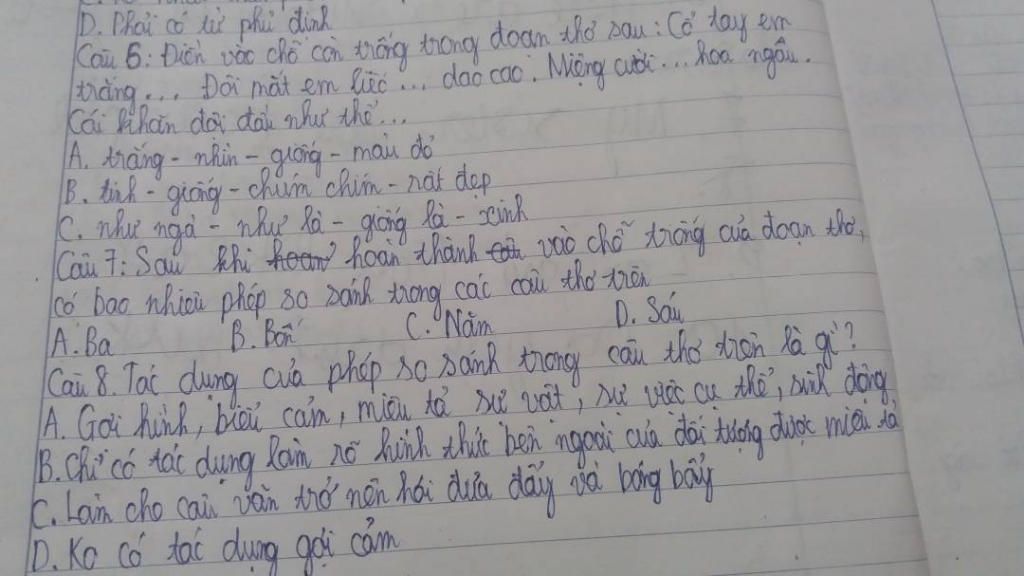 D. Phải có từ phủ định
Câu 6: Điền vào chỗ còn trống trong đoạn thơ sau: Cổ tay em
trắng... Đôi mắt em liếc... dao cao. Miệng cười... hoa ngâu.
Cái khăn đội đầu như thể...
A. trắng - nhìn - giống - màu đỏ
B. tinh - giống - chúm chím - rất đẹp
C. như ngà - như là - giống là - xinh
Câu 7: Sau khi hoàn thành vào chỗ trống của đoạn thơ,
có bao nhiêu phép so sánh trong các câu thơ trên
A. Ba B. Bốn C. Năm D. Sáu
Câu 8. Tác dụng của phép so sánh trong câu thơ trên là gì?
A. Gợi hình, biểu cảm, miêu tả sự vật, sự việc cụ thể, sinh động
B. Chỉ có tác dụng làm rõ hình thức bên ngoài của đối tượng được miêu tả
C. Làm cho câu văn trở nên hơi đưa đẩy và bóng bẩy
D. Ko có tác dụng gợi cảm